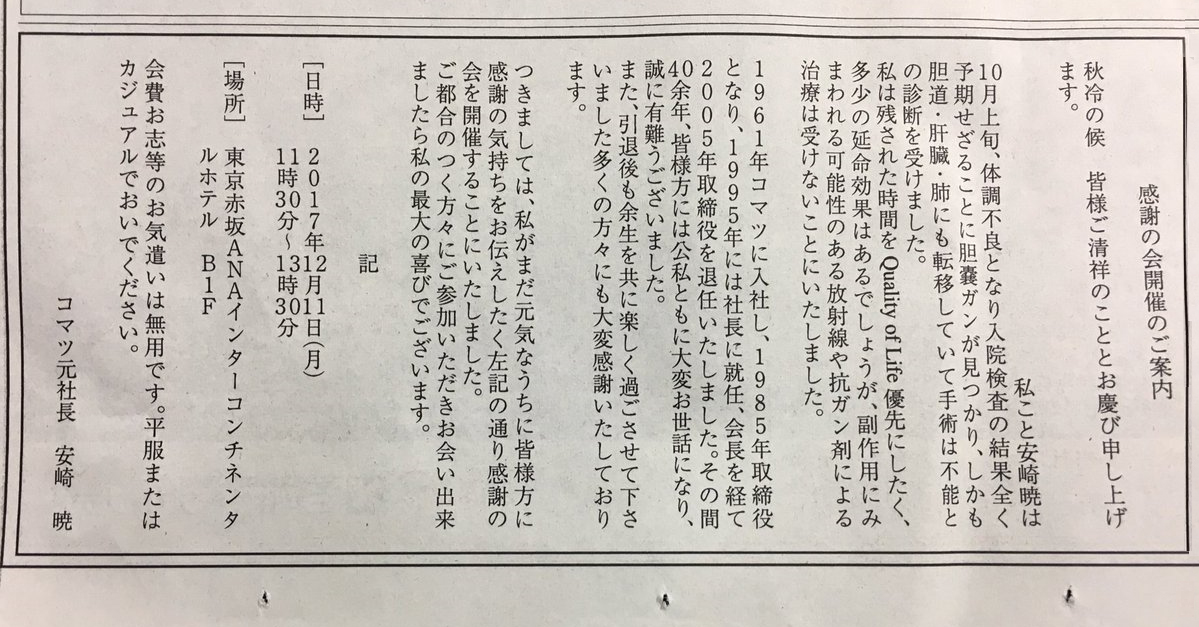 感謝の会開催のご案内
秋冷の候　皆様ご清祥のこととお慶び申し上げ
ます。
私こと安崎暁は
10月上旬、体調不良となり入院検査の結果全く
予期せざることに胆嚢ガンが見つかり、しかも
胆道・肝臓・肺にも転移していて手術は不能と
の診断を受けました。
私は残された時間を Quality of Life 優先にしたく、
多少の延命効果はあるでしょうが、副作用にみ
まわれる可能性のある放射線や抗ガン剤による
治療は受けないことにいたしました。
1961年コマツに入社し、1985年取締役
となり、1995年には社長に就任、会長を経て
2005年取締役を退任いたしました。その間
40余年、皆様方には公私ともに大変お世話になり、
誠に有難うございました。
また、引退後も余生を共に楽しく過ごさせて下さ
いました多くの方々にも大変感謝いたしており
ます。
つきましては、私がまだ元気なうちに皆様方に
感謝の気持ちをお伝えしたく左記の通り感謝の
会を開催することにいたしました。
ご都合のつく方々にご参加いただきお会い出来
ましたら私の最大の喜びでございます。
記
［日時］　2017年12月11日（月）
11時30分～13時30分
［場所］　東京赤坂ANAインターコンチネンタ
ルホテル　B1F
会費お志等のお気遣いは無用です。平服または
カジュアルでおいでください。
コマツ元社長　安崎　暁